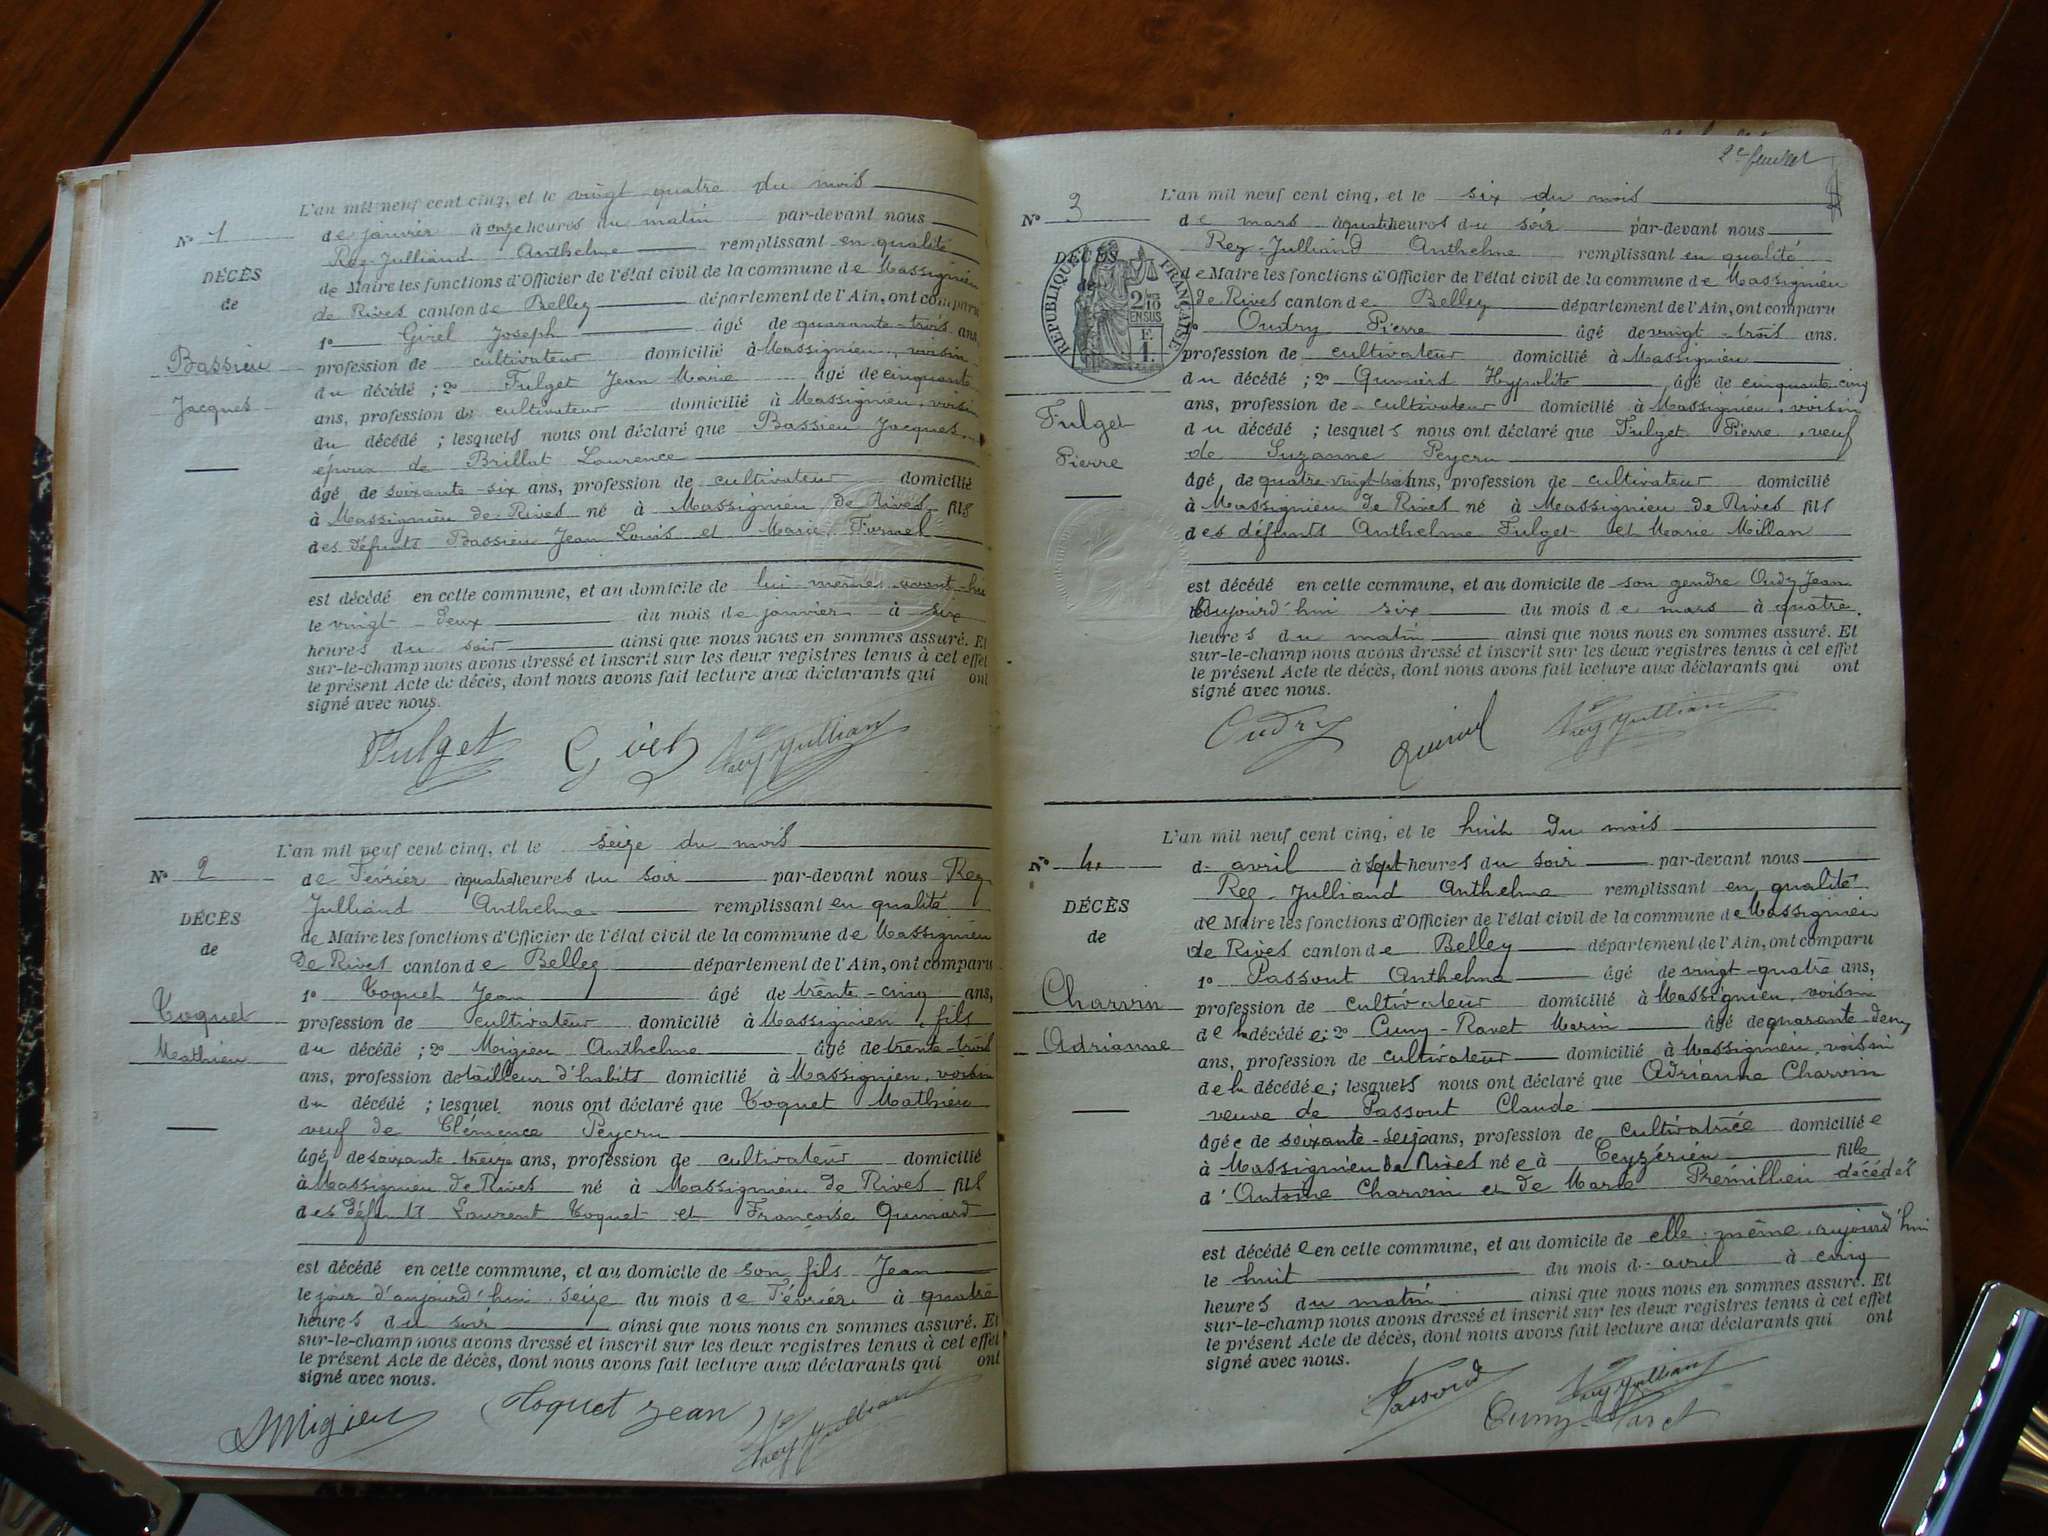 L'an mil neuf cent cinq, et le vingt quatre du mois
N° 1
de janvier à onze heures du matin par-devant nous
Rey-Julliand Anthelme remplissant en qualité
DÉCÈS
de Maire les fonctions d'Officier de l'état civil de la commune de Massignieu
de
de Rives canton de Belley département de l'Ain, ont comparu
1° Girel Joseph âgé de quarante-trois ans,
Bassieu
profession de cultivateur domicilié à Massignieu, voisin
du décédé ; 2° Fulget Jean Marie âgé de cinquante
Jacques
ans, profession de cultivateur domicilié à Massignieu, voisin
du décédé ; lesquels nous ont déclaré que Bassieu Jacques,
époux de Brillat Laurence
âgé de soixante-six ans, profession de cultivateur domicilié
à Massignieu de Rives né à Massignieu de Rives fils
des défunts Bassieu Jean Louis et Marie
est décédé en cette commune, et au domicile de lui-même avant-hier
le vingt-deux du mois de janvier à six
heures du soir ainsi que nous nous en sommes assuré. Et
sur-le-champ nous avons dressé et inscrit sur les deux registres tenus à cet effet
le présent Acte de décès, dont nous avons fait lecture aux déclarants qui ont
signé avec nous.
Fulget Girel Rey Jullian
L'an mil neuf cent cinq, et le seize du mois
N° 2
de Février à quatre heures du soir par-devant nous Rey
Julliand Anthelme remplissant en qualité
DÉCÈS
de Maire les fonctions d'Officier de l'état civil de la commune de Massignieu
de
de Rives canton de Belley département de l'Ain, ont comparu
1° Coquet Jean âgé de trente-cinq ans,
Coquet
profession de cultivateur domicilié à Massignieu, fils
Mathieu
du décédé ; 2° Migieu Anthelme âgé de trente-trois
ans, profession de tailleur d'habits domicilié à Massignieu, voisin
du décédé ; lesquel nous ont déclaré que Coquet Mathieu
veuf de Clémence Peycru
âgé de soixante-treize ans, profession de cultivateur domicilié
à Massignieu de Rives né à Massignieu de Rives fils
des défunts Laurent Coquet et Françoise Quinard
est décédé en cette commune, et au domicile de son fils Jean
le jour d'aujourd'hui seize du mois de Février à quatre
heures du soir ainsi que nous nous en sommes assuré. Et
sur-le-champ nous avons dressé et inscrit sur les deux registres tenus à cet effet
le présent Acte de décès, dont nous avons fait lecture aux déclarants qui ont
signé avec nous.
AMigieu Coquet Jean Rey Jullian
2e feuillet
L'an mil neuf cent cinq, et le six du mois
N° 3
de mars à quatre heures du soir par-devant nous
Rey-Julliand Anthelme remplissant en qualité
DÉCÈS
de
RÉPUBLIQUE FRANÇAISE
2/10 EN SUS
F. 1.
de Maire les fonctions d'Officier de l'état civil de la commune de Massignieu
de Rives canton de Belley département de l'Ain, ont comparu
1° Oudry Pierre âgé de vingt-trois ans.
profession de cultivateur domicilié à Massignieu
du décédé ; 2° Quinard Hypolite âgé de cinquante cinq
Fulget
ans, profession de cultivateur domicilié à Massignieu, voisin
du décédé ; lesquels nous ont déclaré que Fulget Pierre, veuf
Pierre
de Suzanne Peycru
âgé de quatre-vingt-trois ans, profession de cultivateur domicilié
à Massignieu de Rives né à Massignieu de Rives fils
des défunts Anthelme Fulget et Marie Millan
est décédé en cette commune, et au domicile de son gendre Oudry Jean
aujourd'hui six du mois de mars à quatre
heures du matin ainsi que nous nous en sommes assuré. Et
sur-le-champ nous avons dressé et inscrit sur les deux registres tenus à cet effet
le présent Acte de décès, dont nous avons fait lecture aux déclarants qui ont
signé avec nous.
Oudry Rey Jullian
L'an mil neuf cent cinq, et le huit du mois
N° 4
d' avril à sept heures du soir par-devant nous
Rey-Julliand Anthelme remplissant en qualité
DÉCÈS
de Maire les fonctions d'Officier de l'état civil de la commune de Massignieu
de
de Rives canton de Belley département de l'Ain, ont comparu
1° Passout Anthelme âgé de vingt-quatre ans,
Charvin
profession de cultivateur domicilié à Massignieu, voisin
Adrianne
de la décédée ; 2° Cuny-Ravet Marin âgé de quarante-deux
ans, profession de cultivateur domicilié à Massignieu, voisin
de la décédée ; lesquels nous ont déclaré que Adrianne Charvin
veuve de Passout Claude
âgée de soixante-seize ans, profession de cultivatrice domiciliée
à Massignieu de Rives née à Ceyzérieu fille
d'Antoine Charvin et de Marie Prémillieu décédés
est décédée en cette commune, et au domicile de elle-même, aujourd'hui
le huit du mois d' avril à cinq
heures du matin ainsi que nous nous en sommes assuré. Et
sur-le-champ nous avons dressé et inscrit sur les deux registres tenus à cet effet
le présent Acte de décès, dont nous avons fait lecture aux déclarants qui ont
signé avec nous.
Passout Rey Jullian